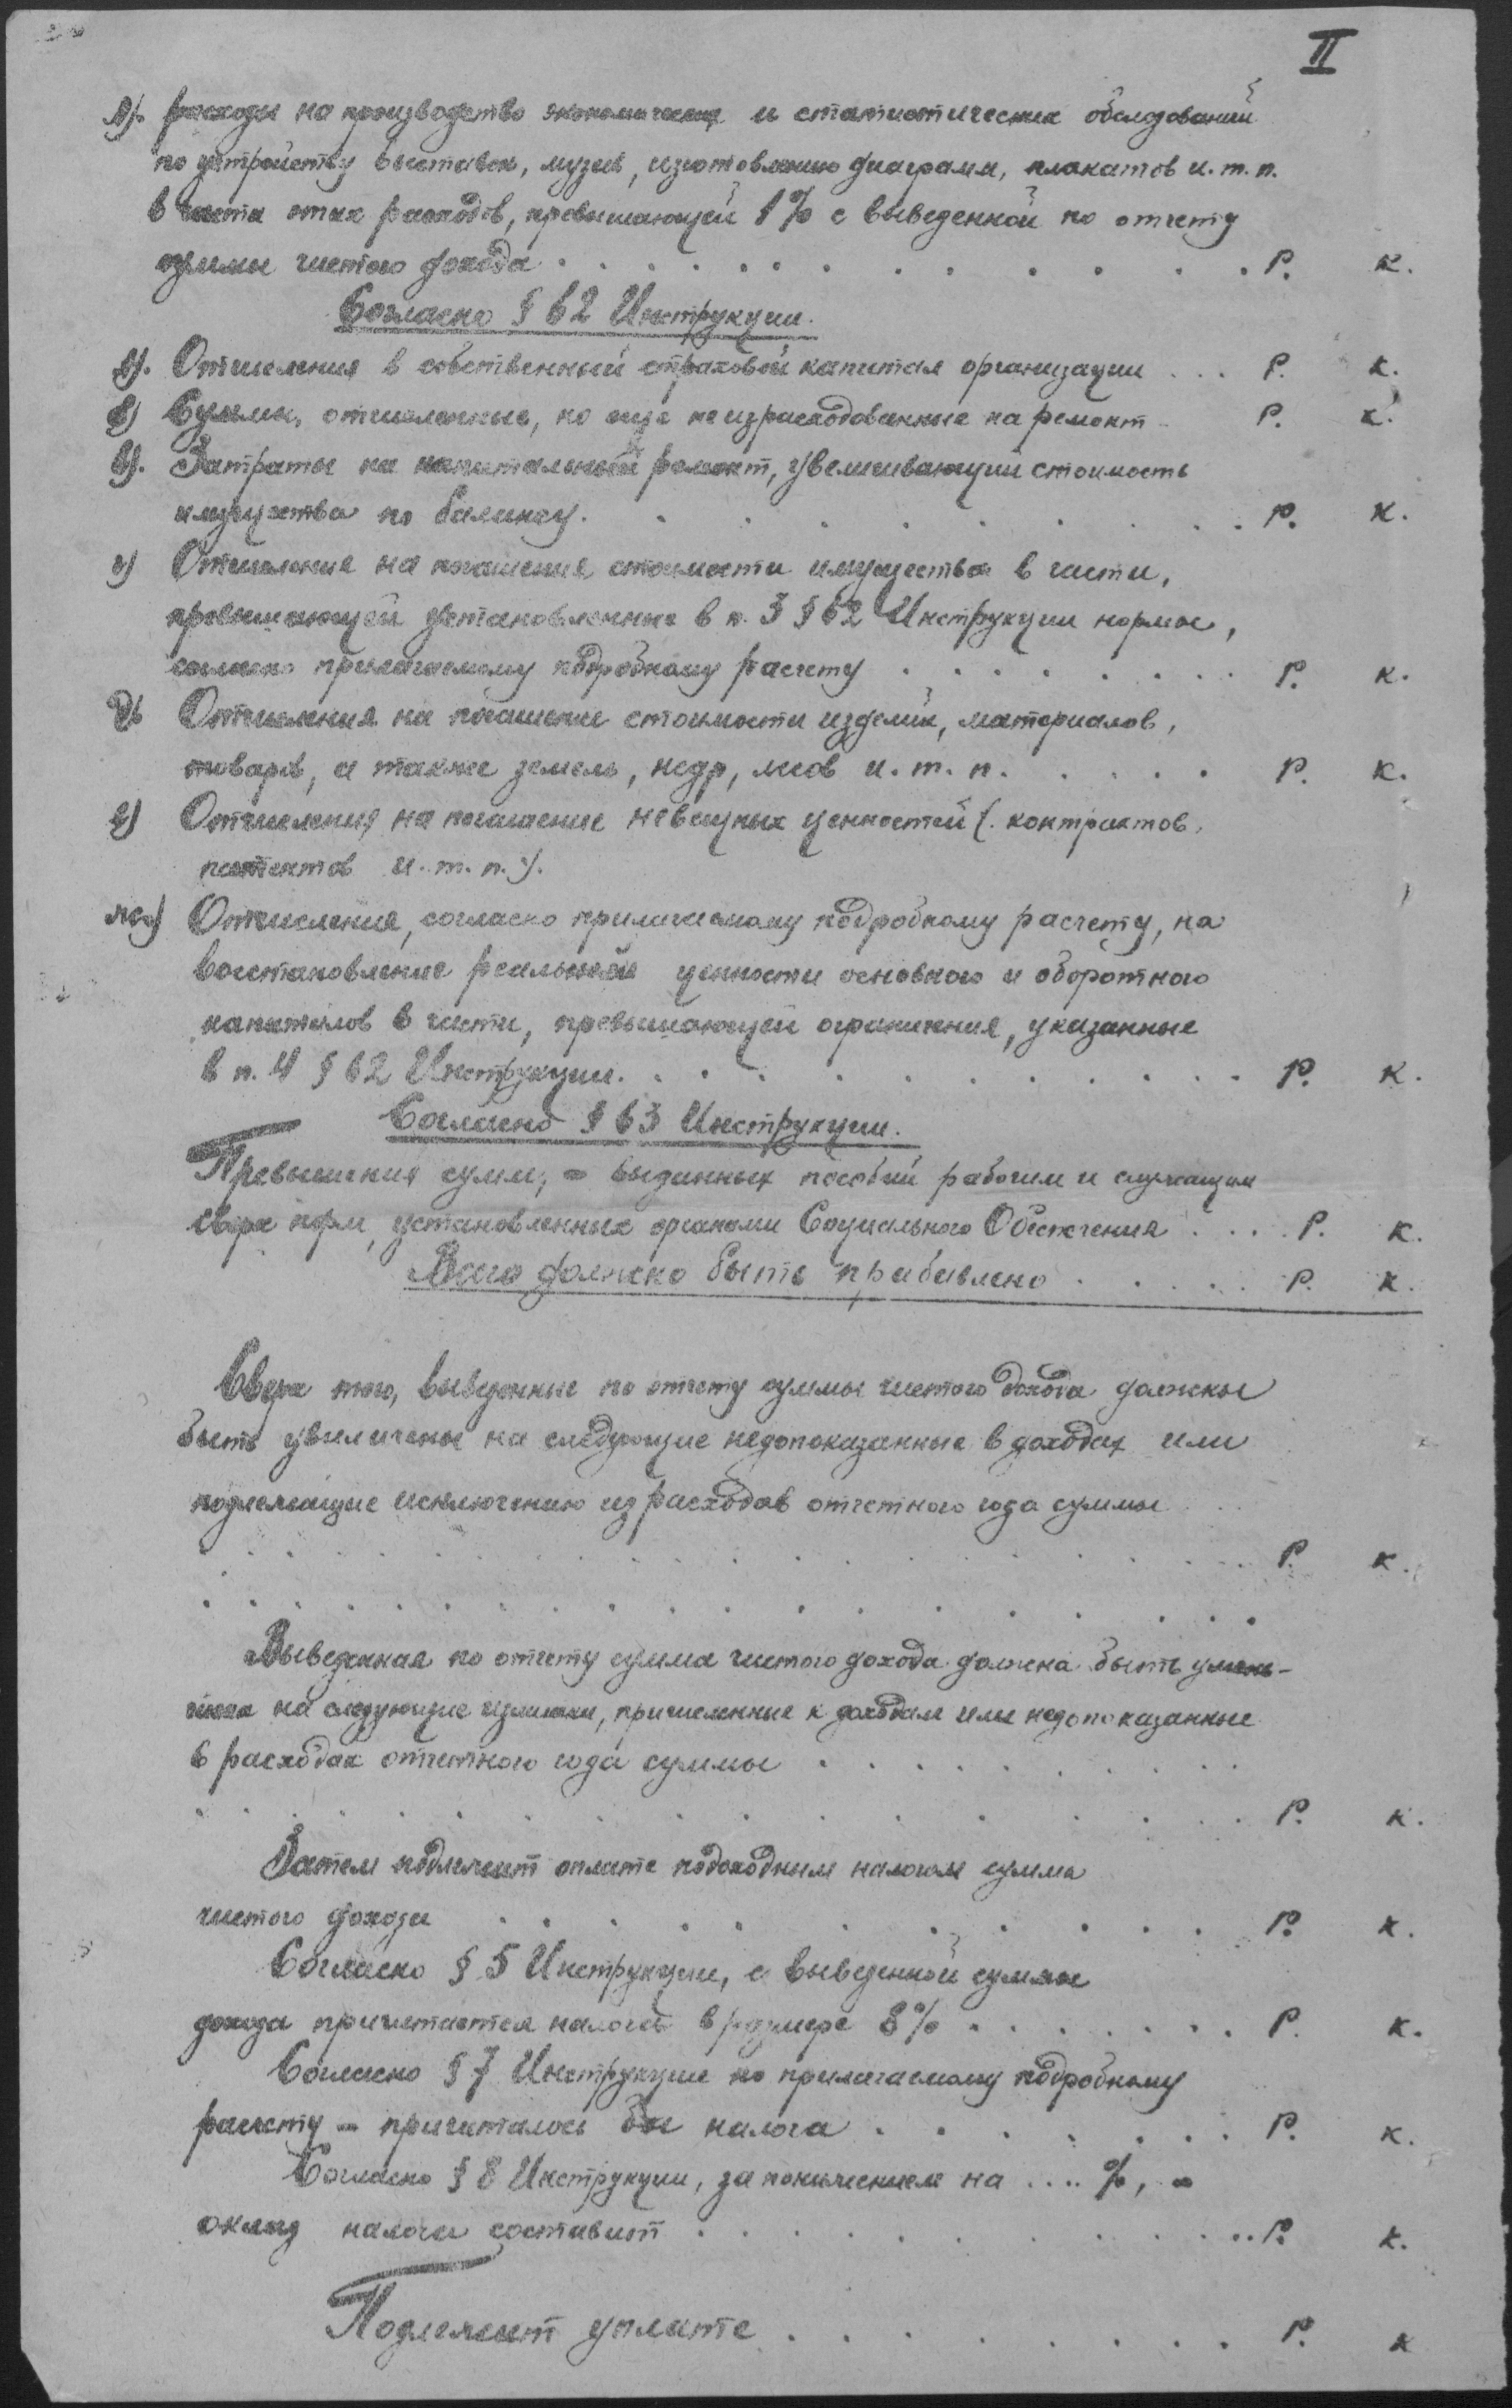 II
л). расходы на производство экономических и статистических обследований
по устройству выставок, музеев, изготовлению диаграмм, плакатов и. т. п.
в части этих расходов, превышающей 1% с выведенной по отчету
суммы чистого дохода . . . . . . . . . . . . Р. к.
Согласно § 62 Инструкции.
а). Отчисления в собственный страховой капитал организации . . . Р. к.
б) Суммы, отчисленные, но еще неизрасходованные на ремонт Р. к.
в). Затраты на капитальный ремонт, увеличивающий стоимость
имущества по балансу. . . . . . . . . . Р. к.
г) Отчисления на погашения стоимости имущества в части,
превышающей установленные в п. 3 § 62 Инструкции нормы,
согласно прилагаемому подробному расчету . . . . . . . . Р. к.
д) Отчисления на погашение стоимости изделий, материалов,
товаров, а также земель, недр, лесов и. т. п. . . . . Р. к.
е) Отчисления на погашение невещных ценностей (. контрактов,
патентов и. т. п.).
ж) Отчисления, согласно прилагаемому подробному расчету, на
восстановление реальной ценности основного и оборотного
капиталов в части, превышающей ограничения, указанные
в п. 4 § 62 Инструкции. . . . . . . . . . . Р. к.
Согласно § 63 Инструкции.
Превышения сумм, = выданных пособий рабочим и служащим
сверх норм, установленных органами Социального Обеспечения . . . . Р. к.
Всего должно быть прибавлено . . . . . Р. к.
Сверх того, выведенные по отчету суммы чистого дохода должны
быть увеличены на следующие недопоказанные в доходах или
подлежащие исключению из расходов отчетного года суммы . .
. . . . . . . . . . . . . . . . Р. к.
. . . . . . . . . . . . . . . .
Выведенная по отчету сумма чистого дохода должна быть умень-
шена на следующие излишки, причисленные к доходам или недопоказанные
в расходах отчетного года суммы . . . . . . . . . .
. . . . . . . . . . . . . . . . Р. к.
Затем подлежит оплате подоходным налогом сумма
чистого дохода . . . . . . . . . . . Р. к.
Согласно § 5 Инструкции, с выведенной суммы
дохода причитается налога в размере 8% . . . . . . . Р. к.
Согласно § 7 Инструкции по прилагаемому подробному
расчету = причиталось бы налога . . . . . . . Р. к.
Согласно § 8 Инструкции, за понижением на .... %, =
оклад налога составит . . . . . . . . . . Р. к.
Подлежит уплате . . . . . . . . Р. к